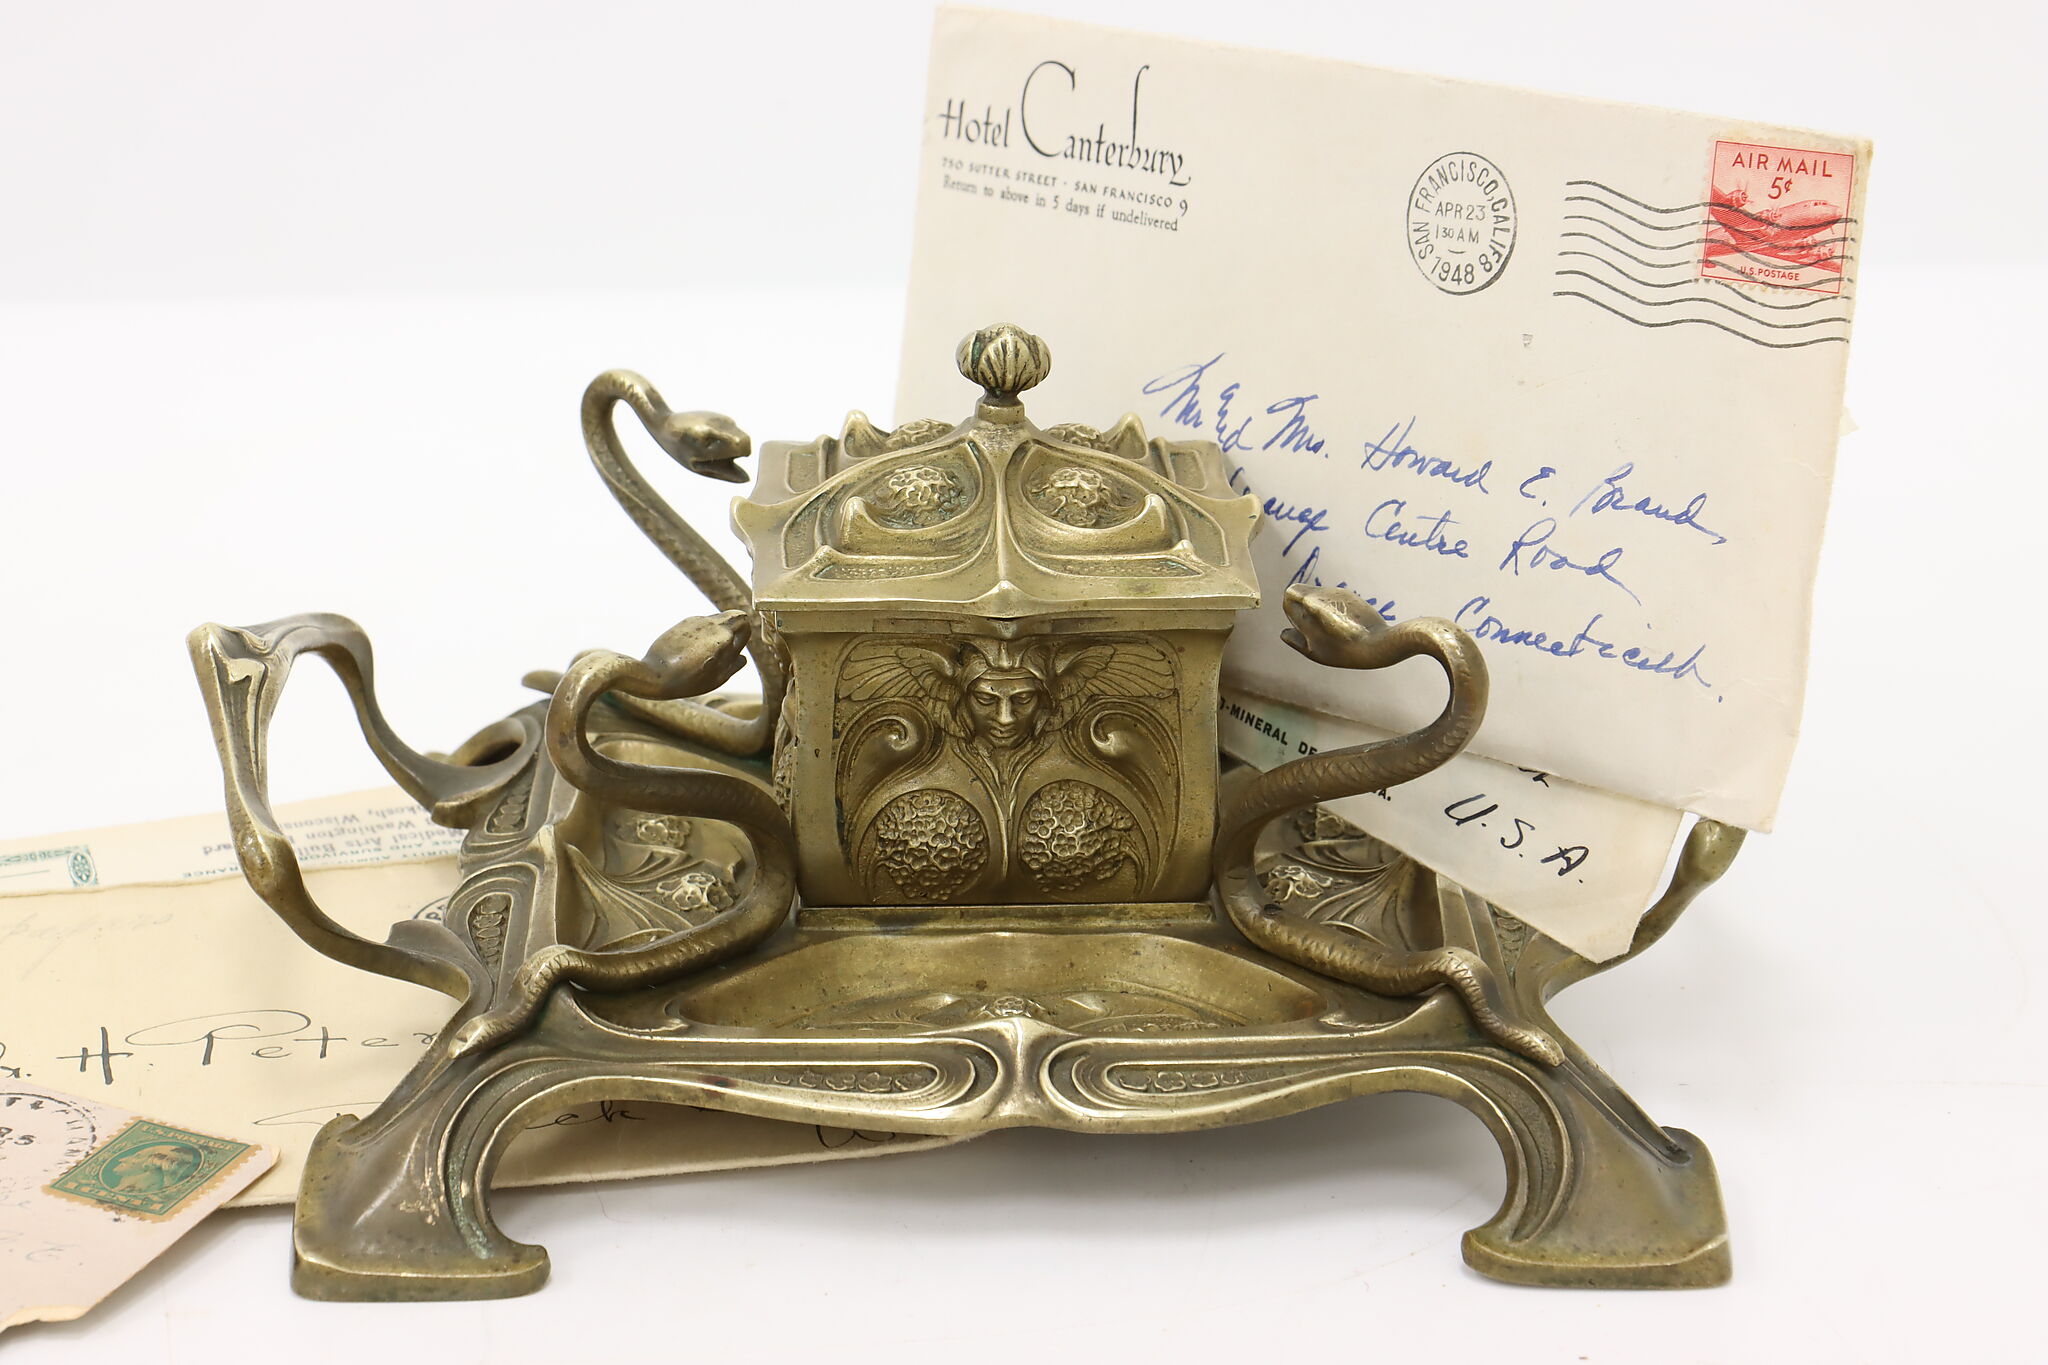 Hotel Canterbury
750 SUTTER STREET - SAN FRANCISCO 9
Return to above in 5 days if undelivered
SAN FRANCISCO, CALIF 8
APR 23
1 30 AM
1948
AIR MAIL
5¢
U.S. POSTAGE
Mr. and Mrs. Howard E. Brand,
Centre Road
Connecticut.
-MINERAL
U.S.A.
Medical Arts
Washington
Wisconsin
H. Peter
U.S. POSTAGE
1 CENT 1